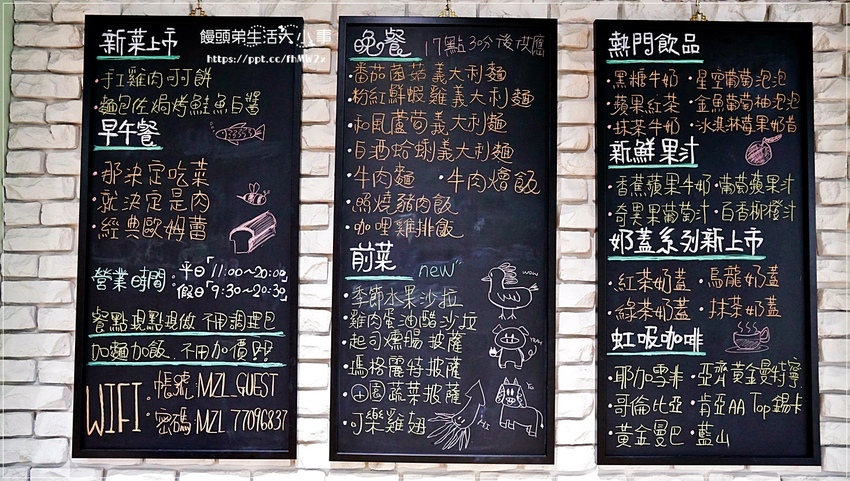 饅頭弟生活大小事
https://ppt.cc/fhMW2x
新菜上市
·手工雞肉可可餅
·麵包佐焗烤鮭魚白醬
早午餐
·那決定吃菜
·就決定是肉
·經典歐姆蕾
營業時間:平日「11:00~20:00」
假日「9:30~20:30」
餐點現點現做 不用調理包
加麵加飯、不用加價即
WIFI:帳號:MZL_GUEST
密碼:MZL 77096837
晚餐 17點30分後供應
·番茄菌菇義大利麵
·粉紅鮮蝦雞義大利麵
·和風蘆筍義大利麵
·白酒蛤蜊義大利麵
·牛肉麵 ·牛肉燴飯
·照燒豬肉飯
·咖哩雞排飯
前菜 new
·季節水果沙拉
·雞肉蛋油醋沙拉
·起司燻腸披薩
·瑪格麗特披薩
·田園蔬菜披薩
·可樂雞翅
WOW
Yo
Hi
熱門飲品
·黑糖牛奶 ·星空葡萄泡泡
·蘋果紅茶 ·金魚葡萄柚泡泡
·抹茶牛奶 ·冰淇淋莓果奶昔
新鮮果汁
·香蕉蘋果牛奶 ·葡萄蘋果汁
·奇異果葡萄汁 ·百香柳橙汁
奶蓋系列新上市
·紅茶奶蓋 ·烏龍奶蓋
·綠茶奶蓋 ·抹茶奶蓋
虹吸咖啡
·耶加雪菲 ·亞齊黃金曼特寧
·哥倫比亞 ·肯亞AA Top錫卡
·黃金曼巴 ·藍山